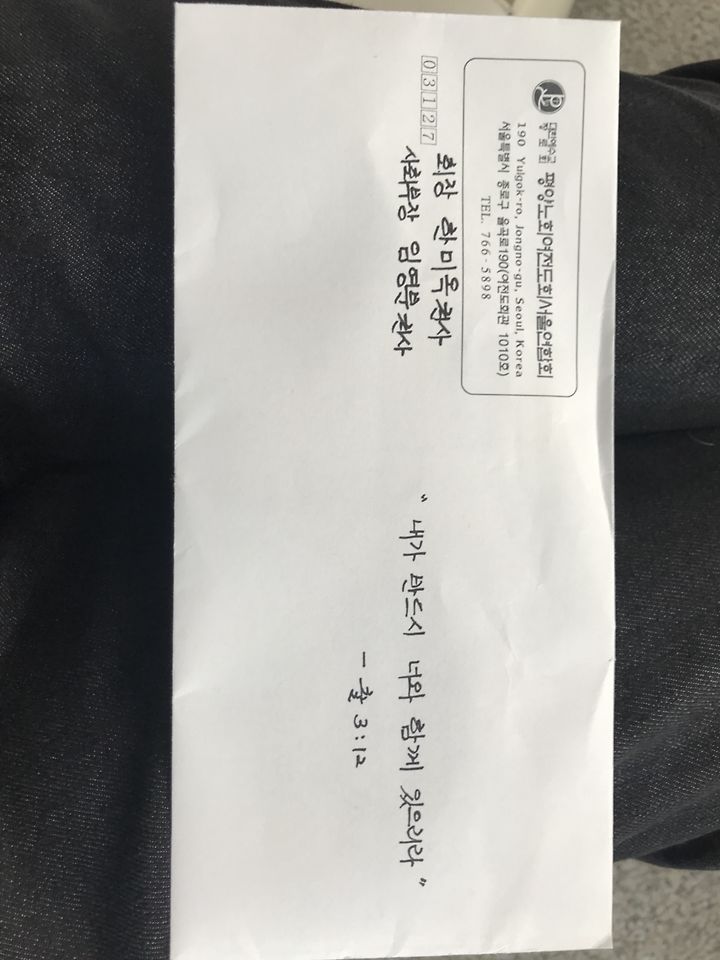 대한예수교
장로회 평양노회여전도회서울연합회
190 Yulgok-ro, Jongno-gu, Seoul, Korea
서울특별시 종로구 율곡로190(여전도회관 1010호)
TEL. 766-5898
03127
회장 한미옥권사
사회부장 임영분권사
" 내가 반드시 너와 함께 있으리라 "
- 출 3:12